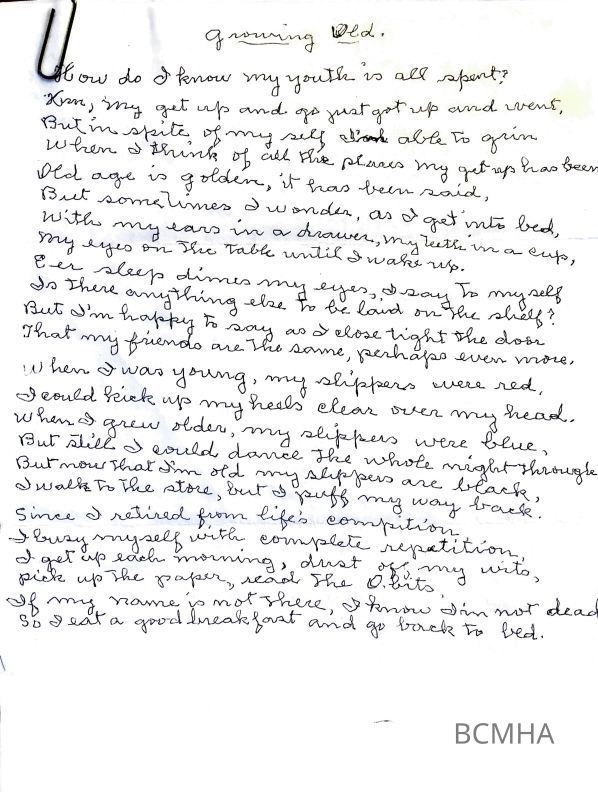 Growing Old.
How do I know my youth is all spent?
my get up and go just got up and went,
But in spite of my self able to grin
When I think of all the places my get up has been
Old age is golden, it has been said,
But sometimes I wonder, as I get into bed,
With my ears in a drawer, my teeth in a cup,
My eyes on the table until I wake up.
E'er sleep dimes my eyes, I say to myself
Is there anything else to be laid on the shelf?
But I'm happy to say as I close tight the door
That my friends are the same, perhaps even more.
When I was young, my slippers were red,
I could kick up my heels clear over my head.
When I grew older, my slippers were blue,
But still I could dance the whole night through
But now that I'm old my slippers are black,
I walk to the store, but I puff my way back.
Since I retired from life's compition
I busy myself with complete repatition,
I get up each morning, dust off my wits,
pick up the paper, read the O.bits,
If my name is not there, I know I'm not dead
So I eat a good breakfast and go back to bed.
BCMHA